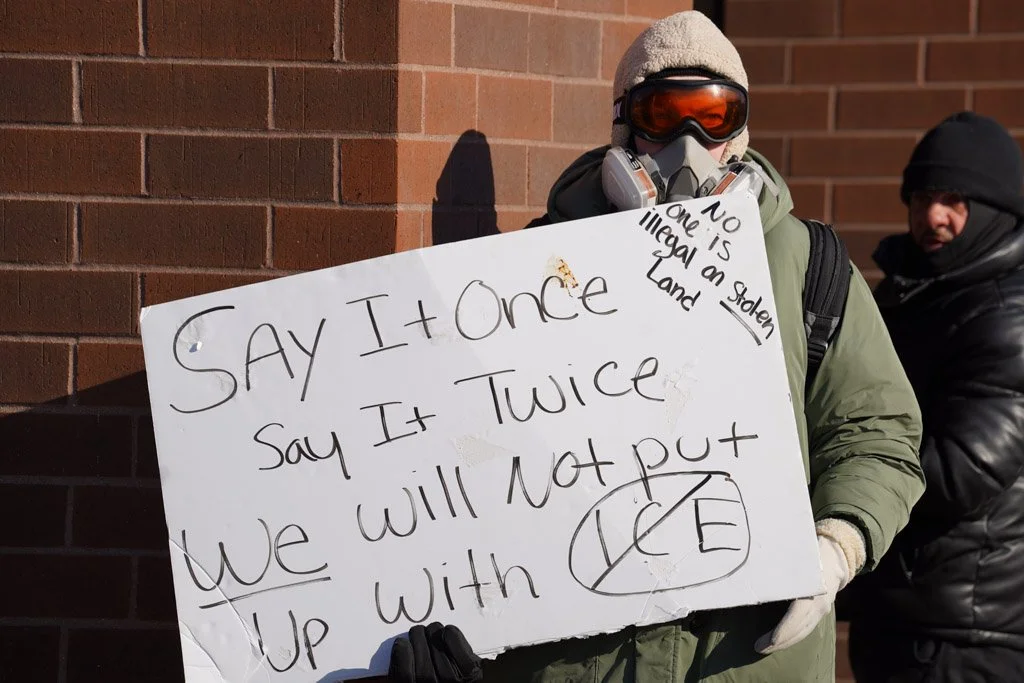 SAY It Once
Say It Twice
We will Not put
Up with ICE
NO
One is
illegal on
Stolen
Land